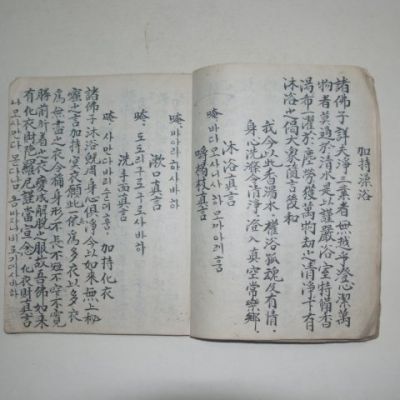 加持澡浴
諸佛子詳夫淨三業者無越乎澄心潔萬
物者莫過於清水是以謹嚴浴室特備香
湯希一濯於塵勞獲萬劫之清淨下有
沐浴之偈大衆隨言後和
我今以此香湯水 灌浴孤魂及有情
身心洗滌令清淨 證入真空常樂鄉
沐浴真言
唵 바다모사니사 아모까아레훔
嚼楊枝真言
唵 바아라하사바하
漱口真言
唵 도도리구로구로사바하
洗手面真言
唵 사만다바리숟뎨훔
加持化衣
諸佛子沐浴旣周身心俱淨今以如來無上秘
密之言加持冥衣願此一衣爲多衣以多衣
爲無盡之衣令稱身形不長不短不窄不寬
勝前所着之衣變成解脫之服故吾佛如來
有化衣財陀羅尼謹當宣念 化衣財真言
나모사만다 못다남 옴바자나비로기제사바하